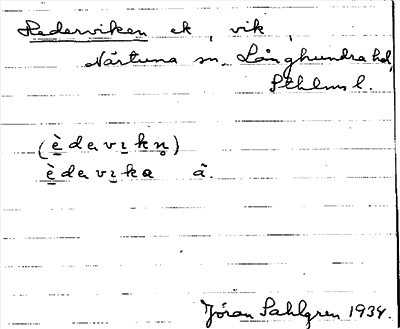 Hederviken ek, vik,
Närtuna sn. Långhundra hd,
Sthlms l.
(è̠dɐvɪ̠kn̥)
è̠dɐvɪ̠ka ä.
Jöran Sahlgren 1934.